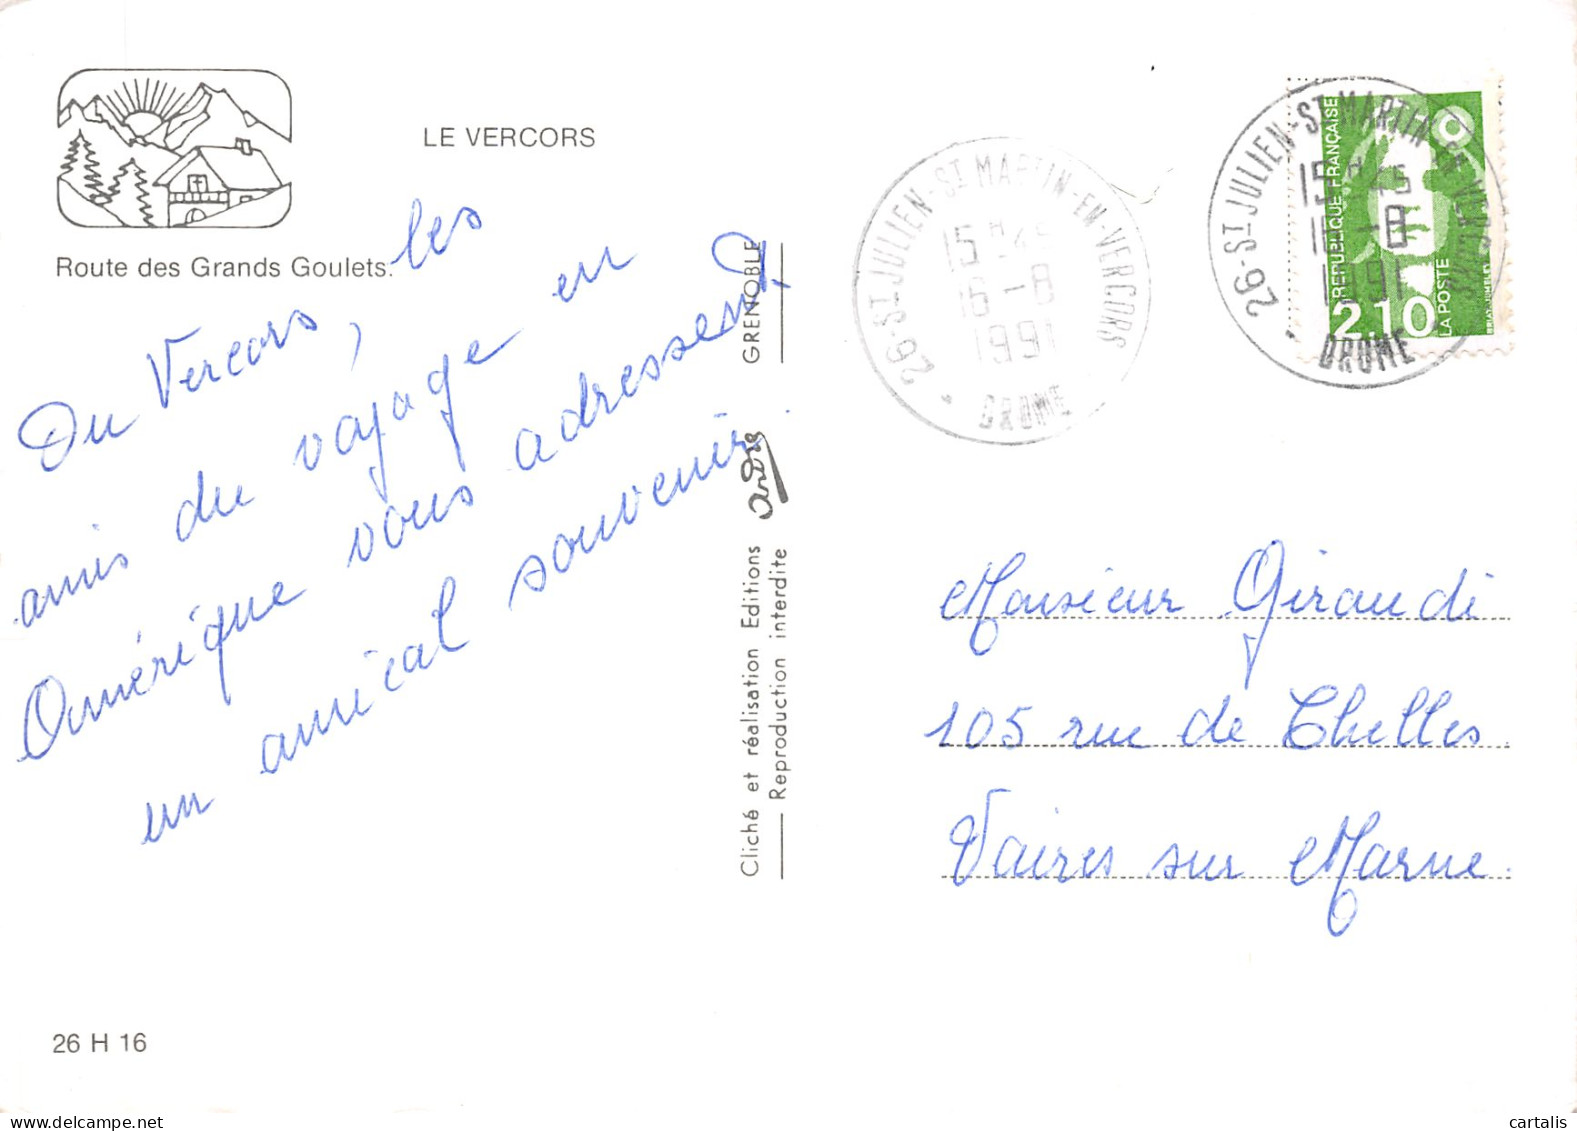 LE VERCORS
Route des Grands Goulets.
Du Vercors, les
amis du voyage en
Amérique vous adressent
un amical souvenir.
26 H 16
GRENOBLE
André
Cliché et réalisation Editions
Reproduction interdite
26-ST JULIEN-ST MARTIN-EN-VERCORS
15H45
16-8
1991
DROME
26-ST JULIEN-ST MARTIN-EN-VERCORS
15H45
16-8
1991
DROME
REPUBLIQUE FRANÇAISE
2,10
LA POSTE
BRIAT.JUMELET
Monsieur Giraudi
105 rue de Chelles
Vaires sur Marne
cartalis